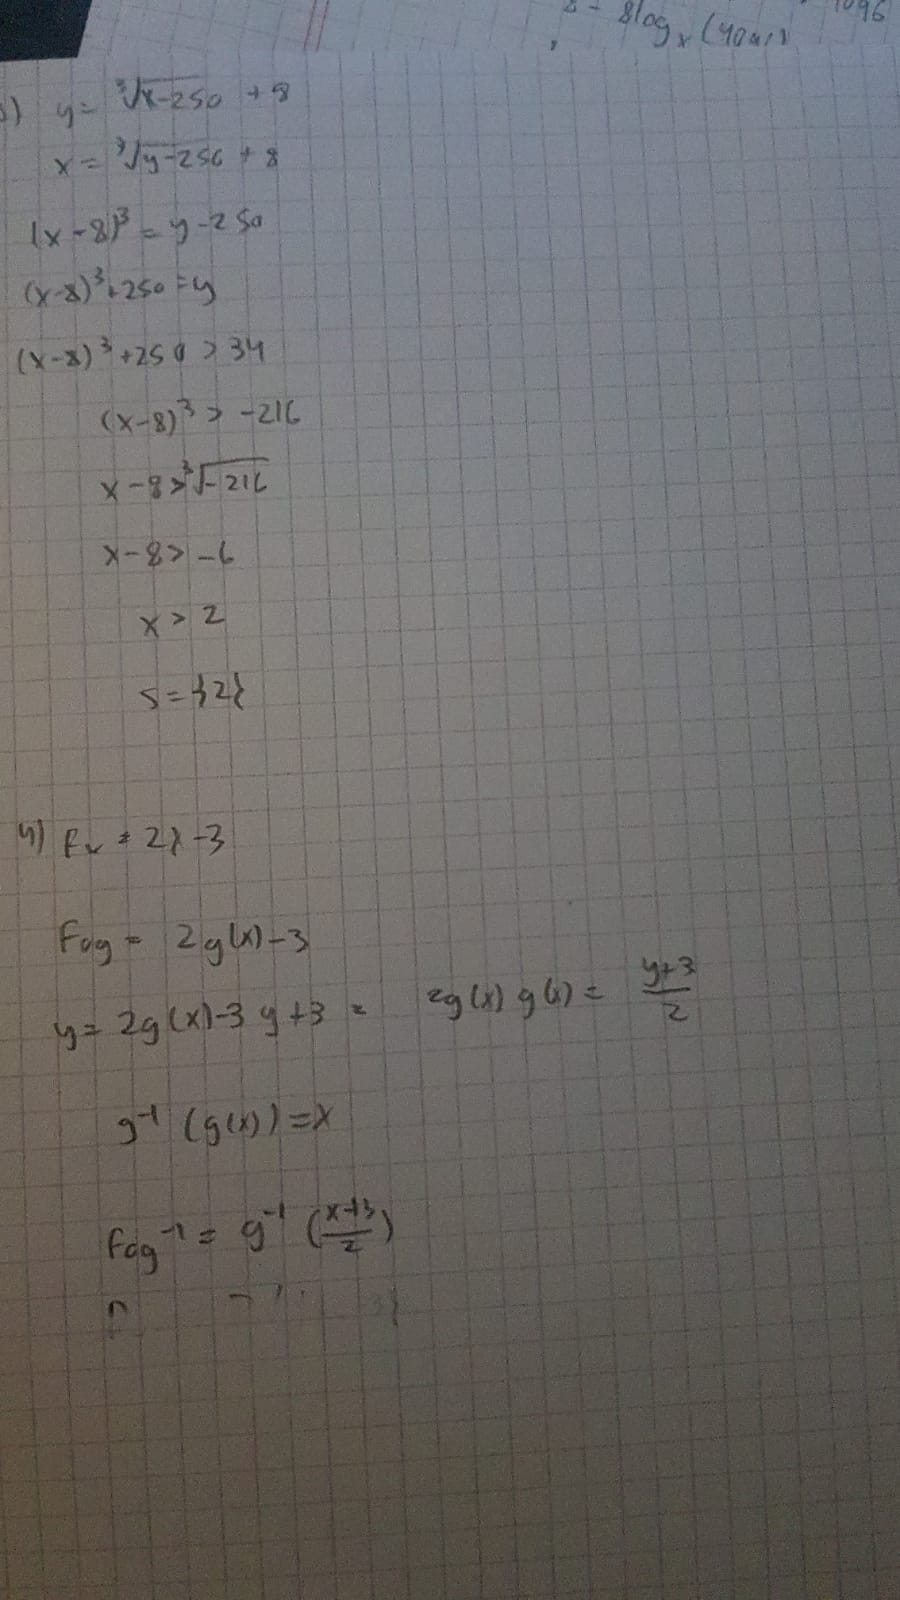 8log x (40
1096
y = ³√x-250 + 8
x = ³√y-250 + 8
(x-8)³ = y-250
(x-8)³+250=y
(x-8)³+250 > 34
(x-8)³ > -216
x-8>³√-216
x-8> -6
x > 2
S={2}
4) Fx = 2x-3
Fog = 2g(x)-3
y= 2g(x)-3 y+3 = 2g(x) g(x) = y+3/2
g⁻¹ (g(x))=x
Fog⁻¹ = g⁻¹ (x+3/2)